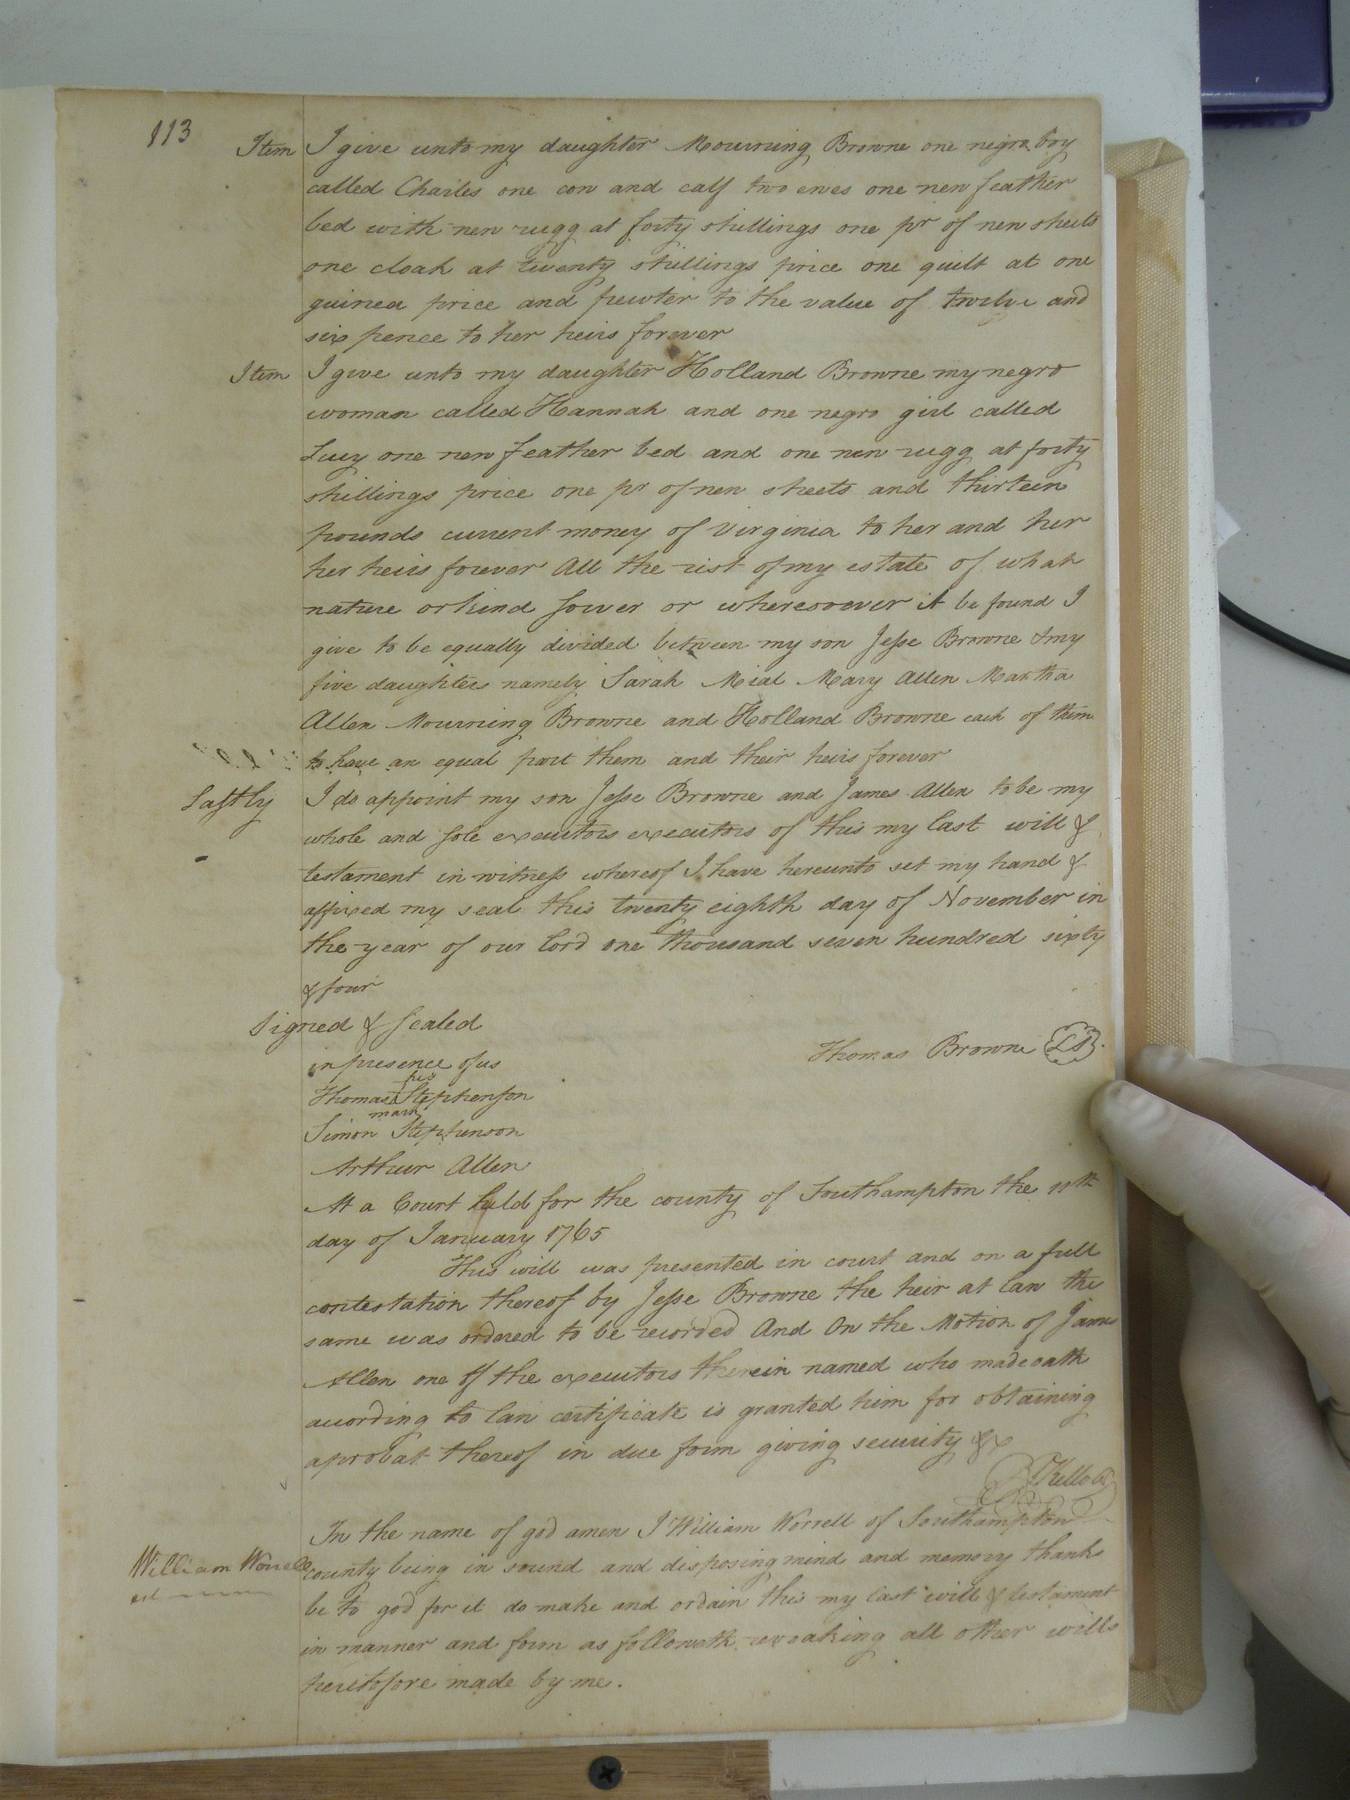 113
Item I give unto my daughter Mourning Browne one negro boy
called Charles one cow and calf two ewes one new feather
bed with new rugg at forty shillings one pr of new sheets
one cloak at twenty shillings price one quilt at one
guinea price and pewter to the value of twelve and
six pence to her heirs forever
Item I give unto my daughter Holland Browne my negro
woman called Hannah and one negro girl called
Lucy one new feather bed and one new rugg at forty
shillings price one pr of new sheets and thirteen
pounds current money of Virginia to her and her
her heirs forever All the rest of my estate of what
nature or kind sower or wheresoever it be found I
give to be equally divided between my son Jesse Browne & my
five daughters namely Sarah Mial Mary Allen Martha
Allen Mourning Browne and Holland Browne each of them
to have an equal part them and their heirs forever
Lastly I do appoint my son Jesse Browne and James Allen to be my
whole and sole executors executors of this my last will &
testament in witness whereof I have hereunto set my hand &
affixed my seal this twenty eighth day of November in
the year of our lord one thousand seven hundred sixty
& four
Signed & sealed
in presence of us
Thomas Browne LS
his
Thomas Stephenson
mark
Simon Stephenson
Arthur Allen
At a Court held for the county of Southampton the 11th
day of January 1765
This will was presented in court and on a full
contestation thereof by Jesse Browne the heir at law the
same was ordered to be recorded And On the Motion of James
Allen one of the executors therein named who made oath
according to law certificate is granted him for obtaining
a probat thereof in due form giving security &c
Kello
In the name of god amen I William Worrell of Southampton
William Worrell county being in sound and disposing mind and memory thanks
be to god for it do make and ordain this my last will & testament
in manner and form as followeth revoaking all other wills
heretofore made by me.